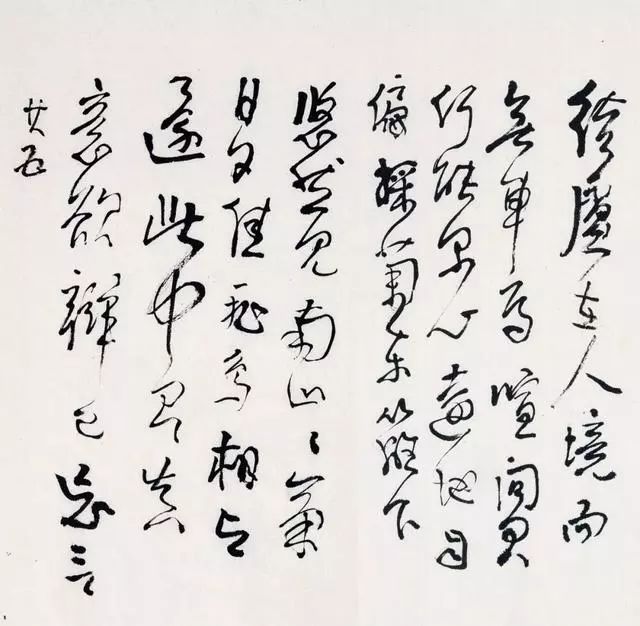 結廬在人境而
無車馬喧問君
何能爾心遠地自
偏採菊東籬下
悠然見南山々氣
日夕佳飛鳥相与
還此中有真
意欲辯已忘言
其五